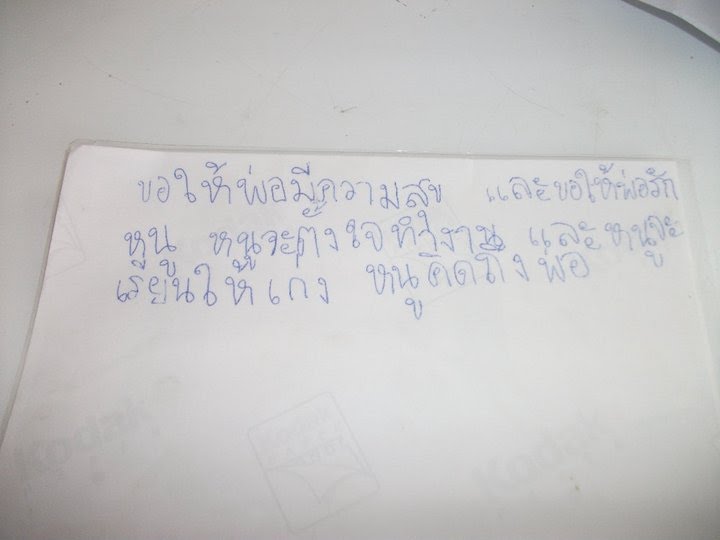 ขอให้พ่อมีความสุข และขอให้พ่อรัก
หนู หนูจะตั้งใจทำงาน และหนูจะ
เรียนให้เก่ง หนูคิดถึงพ่อ
Kodak
Kodak
Kodak